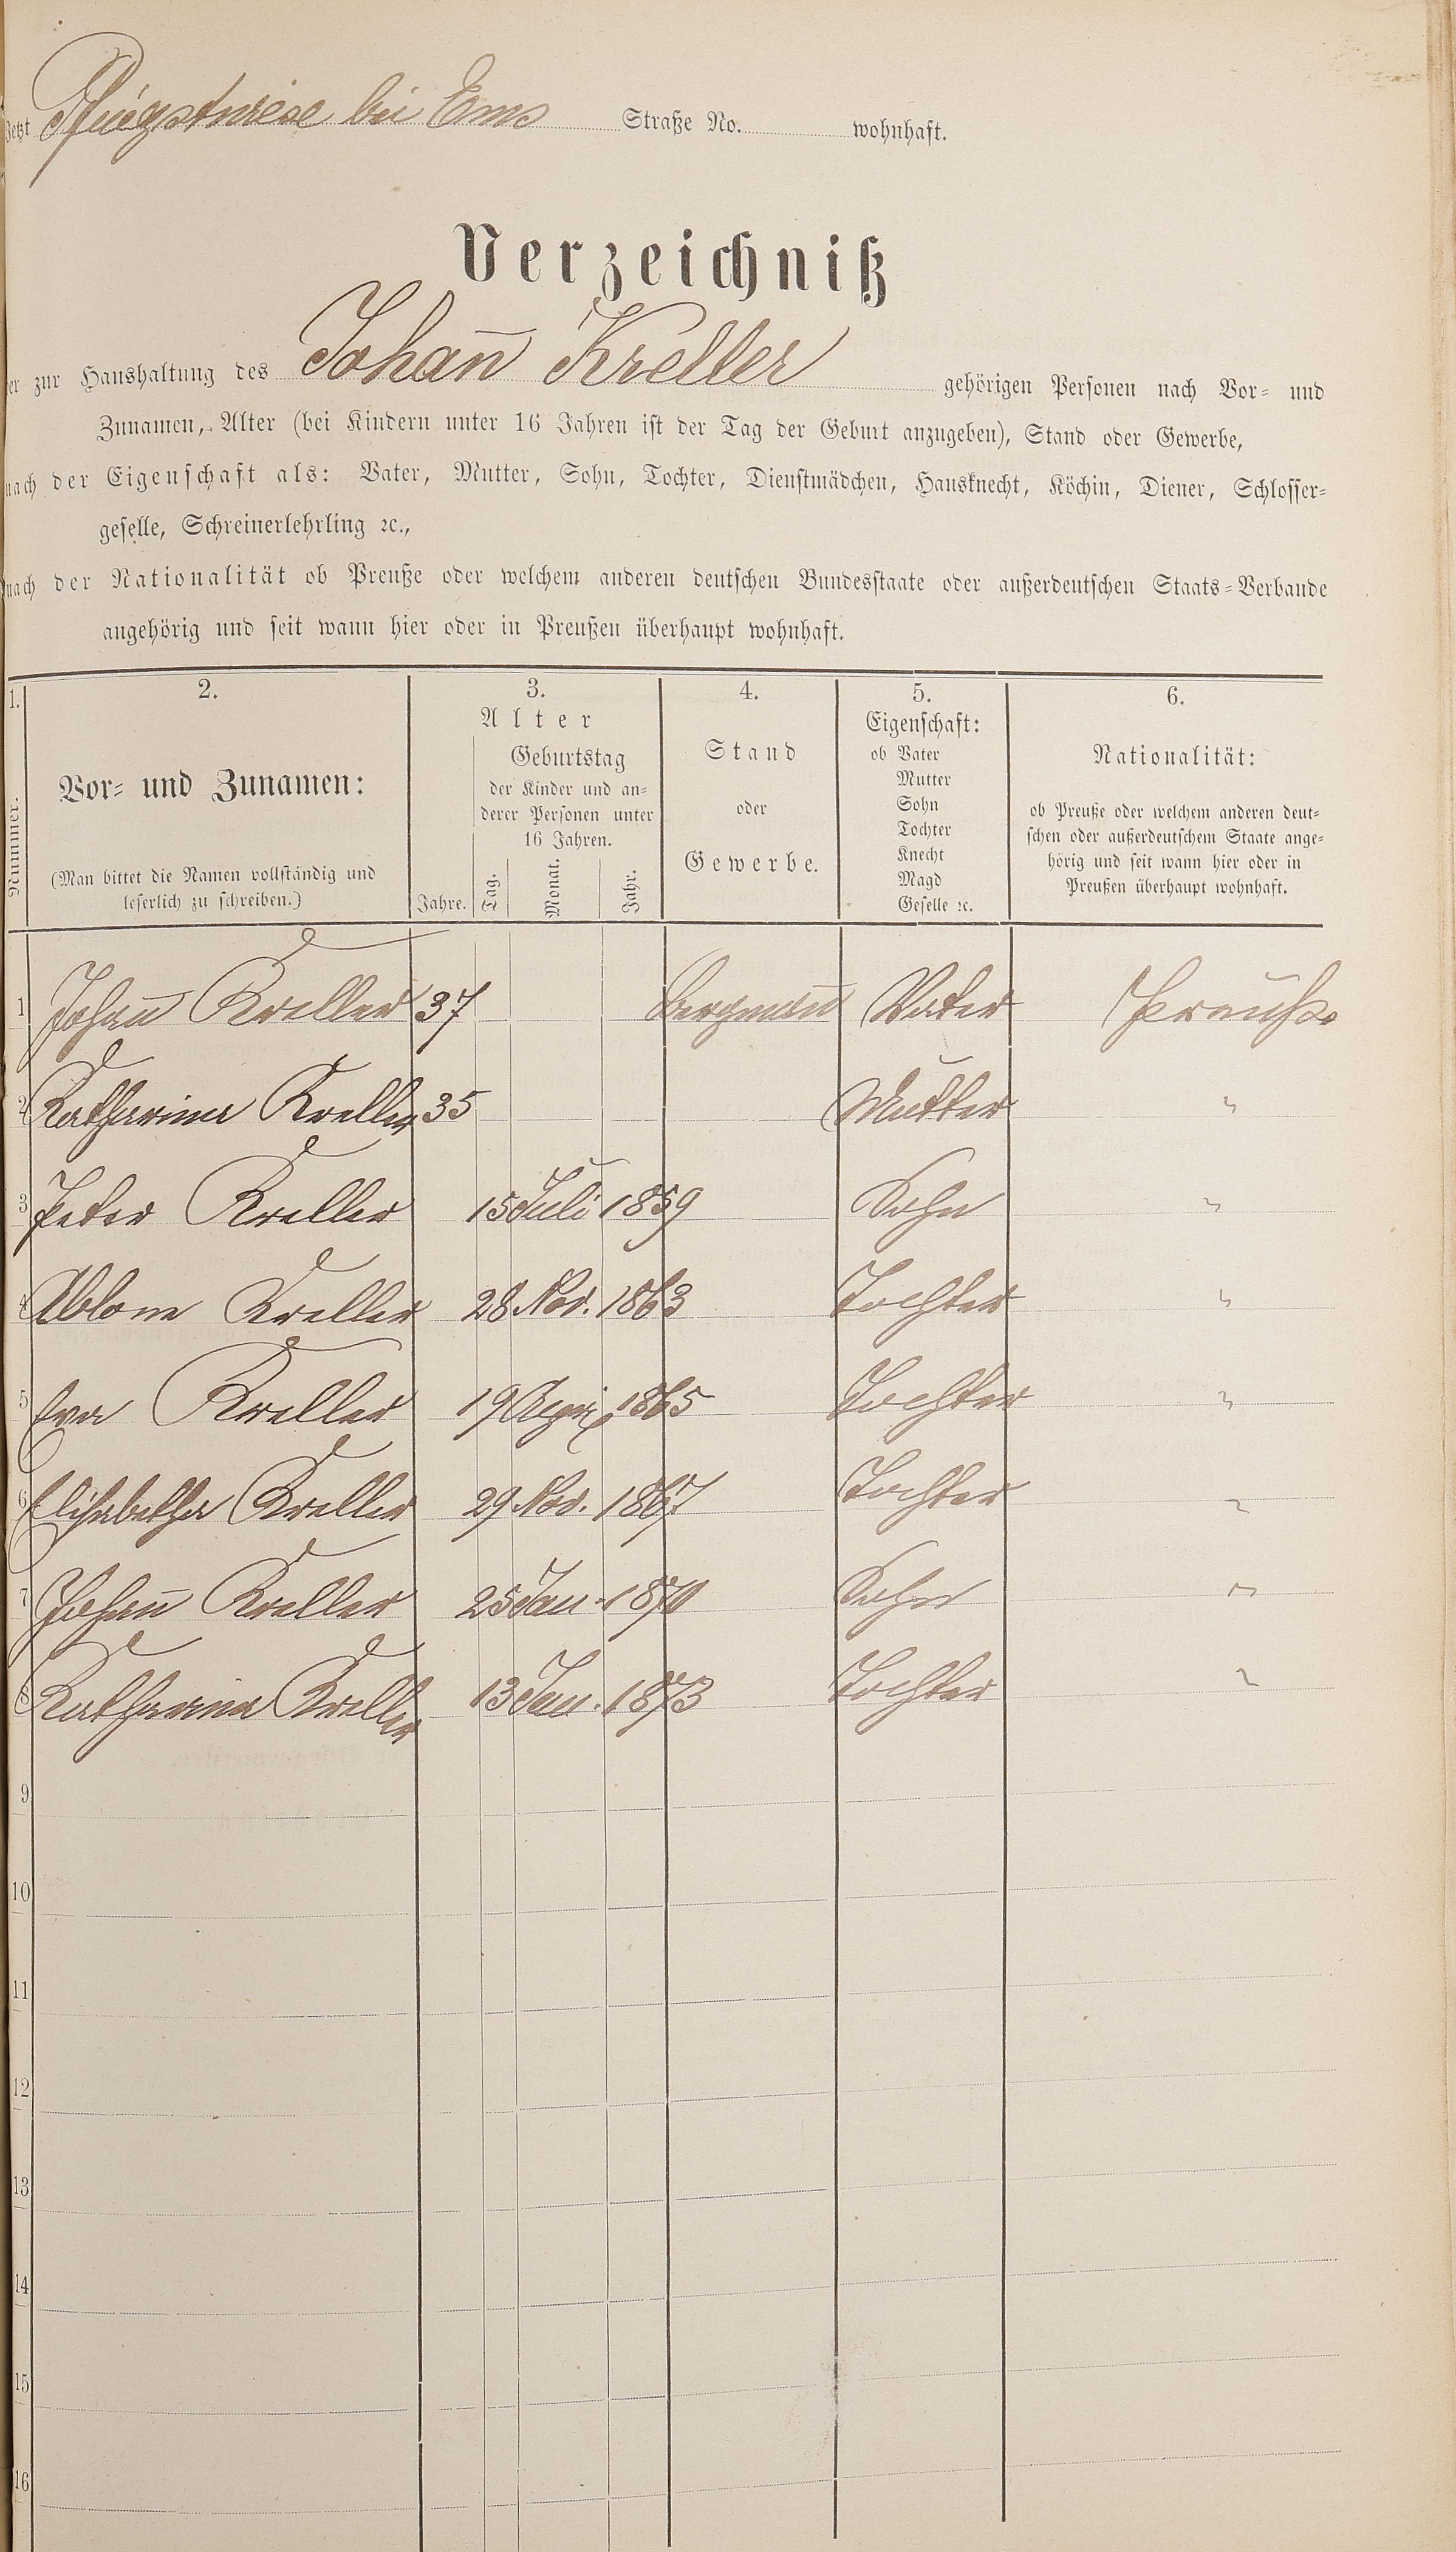 Jetzt Pfingstwiese bei Ems Straße No. wohnhaft.
Verzeichniß
der zur Haushaltung des Johan̄ Kreller gehörigen Personen nach Vor- und
Zunamen, Alter (bei Kindern unter 16 Jahren ist der Tag der Geburt anzugeben), Stand oder Gewerbe,
nach der Eigenschaft als: Vater, Mutter, Sohn, Tochter, Dienstmädchen, Hausknecht, Köchin, Diener, Schlosser-
geselle, Schreinerlehrling ꝛc.,
nach der Nationalität ob Preuße oder welchem anderen deutschen Bundesstaate oder außerdeutschen Staats-Verbande
angehörig und seit wann hier oder in Preußen überhaupt wohnhaft.
1.
Nummer.
2.
Vor- und Zunamen:
(Man bittet die Namen vollständig und
leserlich zu schreiben.)
3.
Alter
Jahre.
Geburtstag
der Kinder und an-
derer Personen unter
16 Jahren.
Tag. Monat. Jahr.
4.
Stand
oder
Gewerbe.
5.
Eigenschaft:
ob Vater
Mutter
Sohn
Tochter
Knecht
Magd
Geselle ꝛc.
6.
Nationalität:
ob Preuße oder welchem anderen deut-
schen oder außerdeutschem Staate ange-
hörig und seit wann hier oder in
Preußen überhaupt wohnhaft.
1 Johan̄ Kreller 37 Bergman̄ Vater Preuße
2 Katharina Kreller 35 Mutter "
3 Peter Kreller 15 Juli 1859 Sohn "
4 Kreller 28 Nov. 1863 Tochter "
5 Eva Kreller 19 April 1865 Tochter "
6 Elisabetha Kreller 29 Nov. 1867 Tochter "
7 Johan̄ Kreller 25 Jan. 1870 Sohn "
8 Katharina Kreller 13 Jan. 1873 Tochter "
9
10
11
12
13
14
15
16